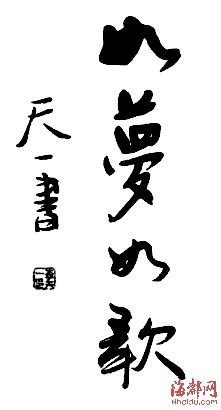 如夢如歌
天一書
海都网
nhaidu.com